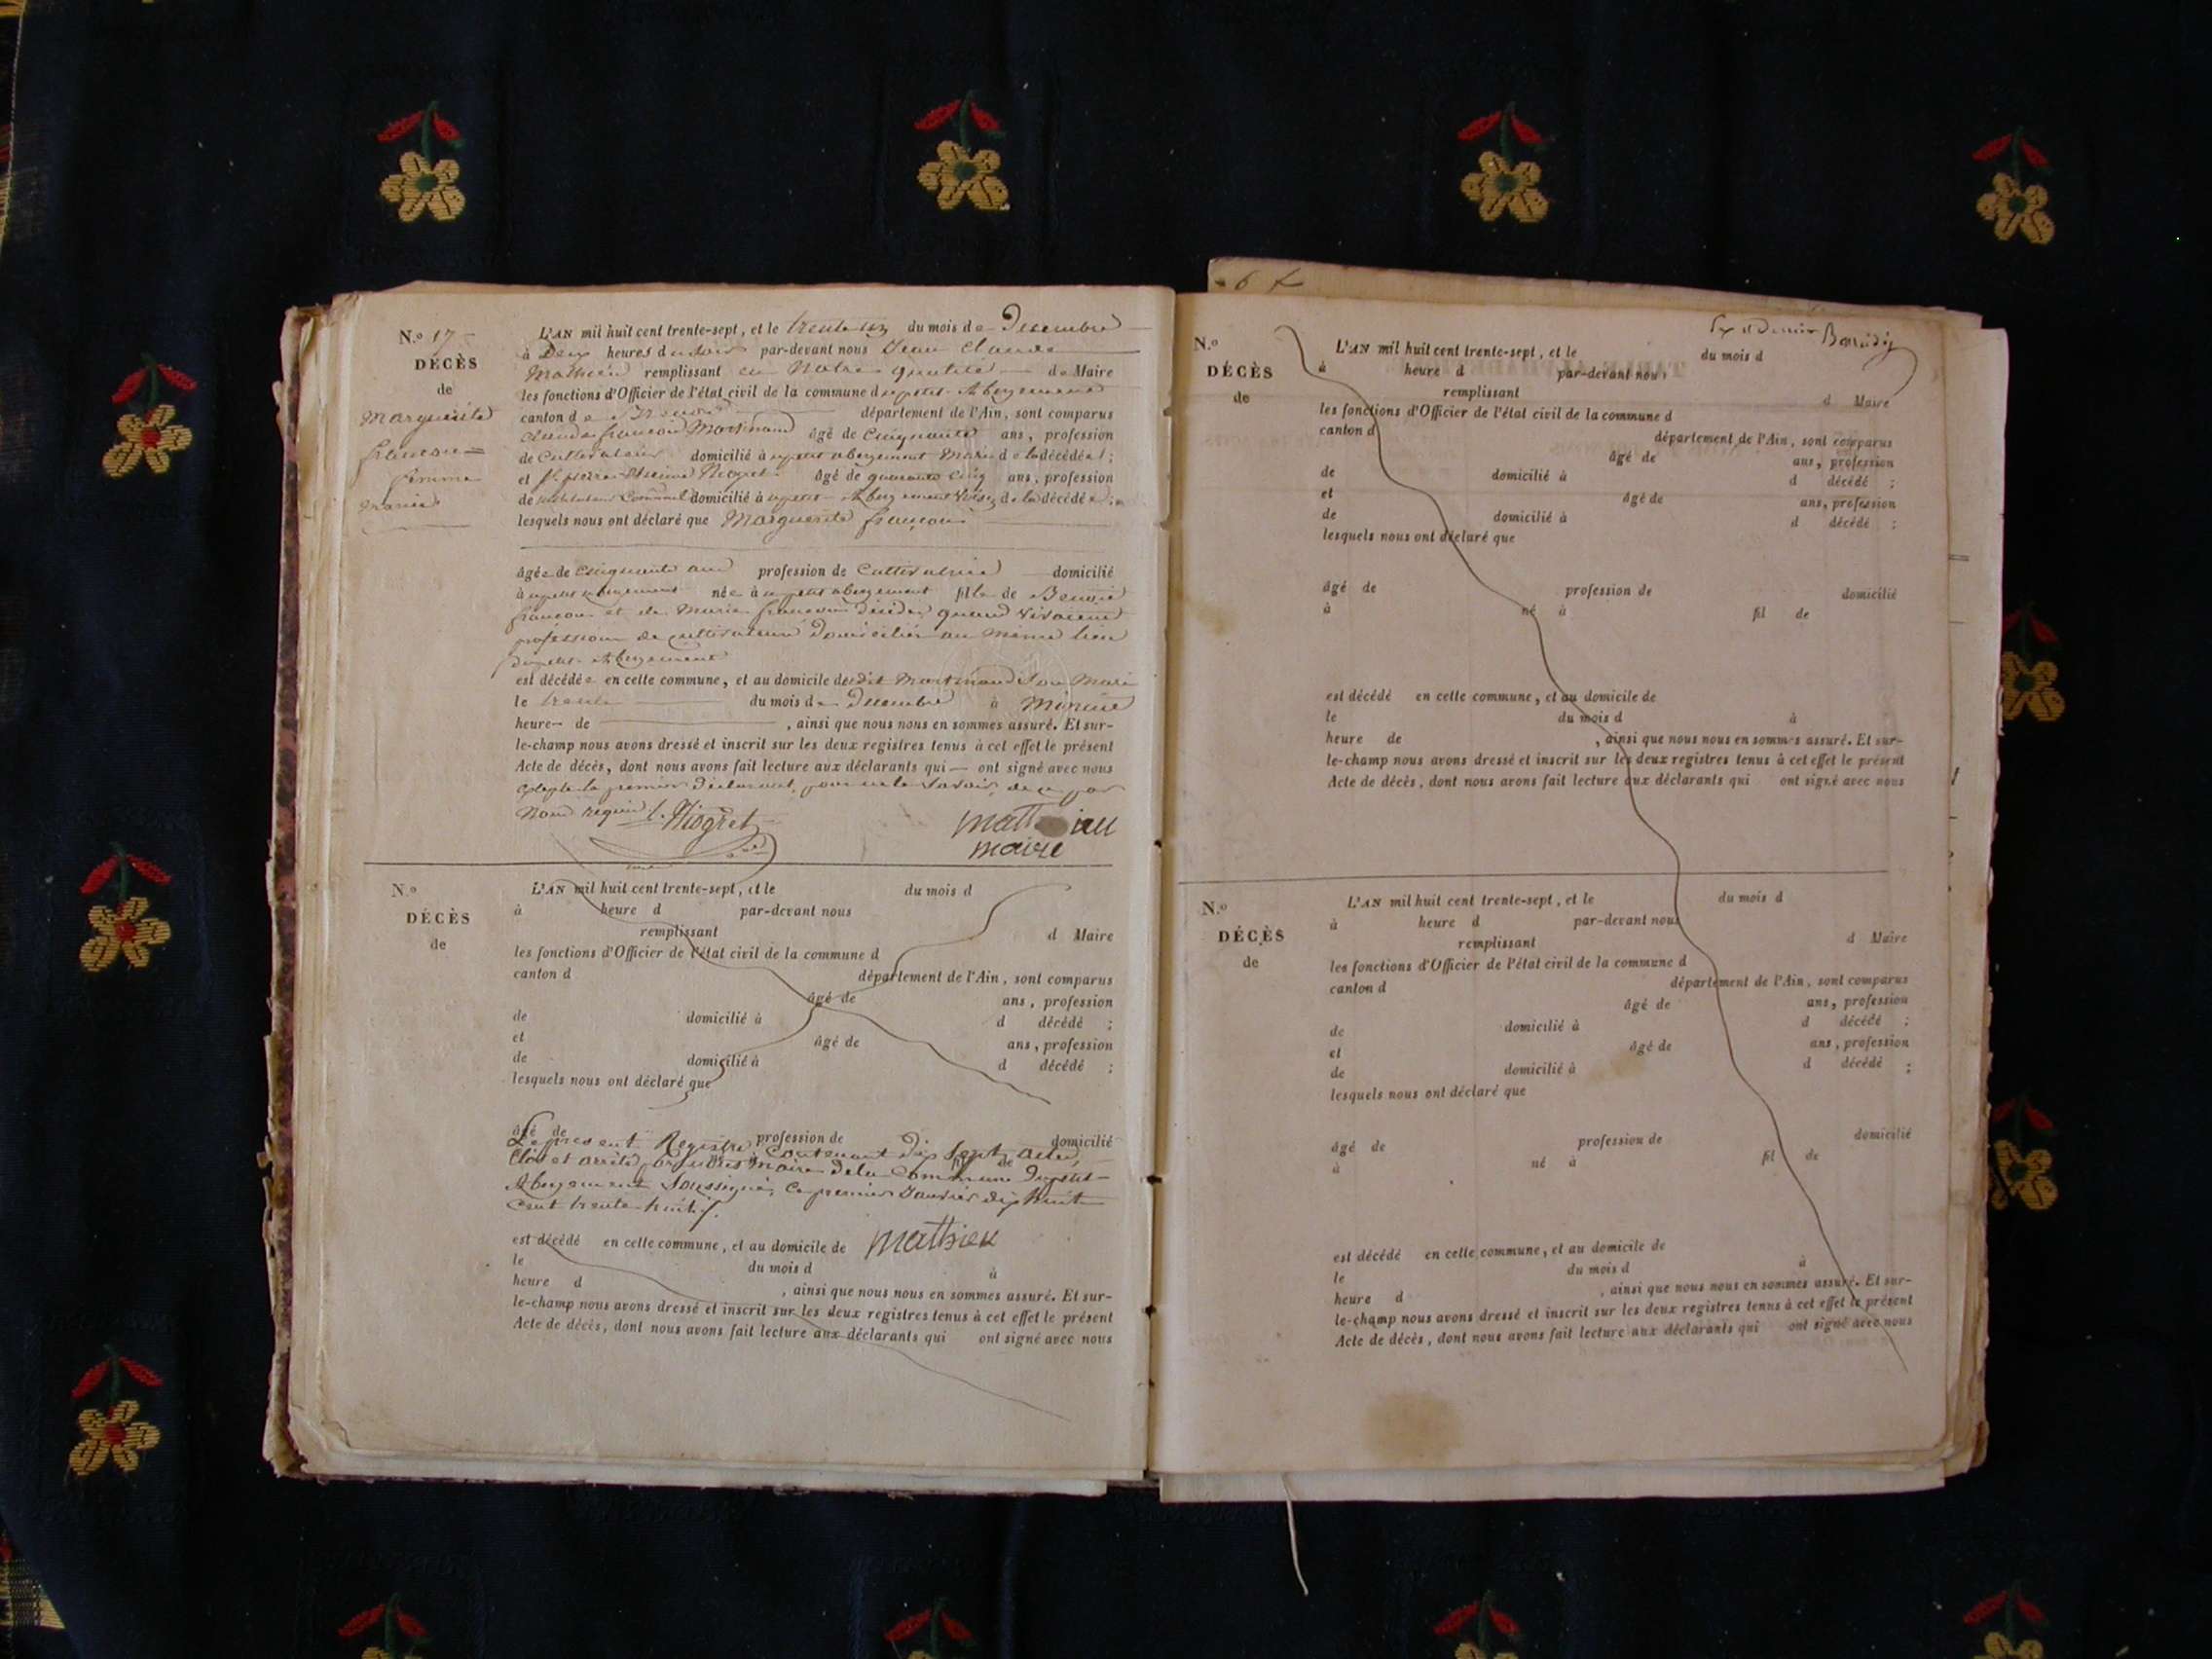 N.º 17
DÉCÈS
de
Marguerite
françon
femme
L'AN mil huit cent trente-sept, et le trente un du mois de Decembre
à Deux heures du soir par-devant nous Jean Claude
Mathieu remplissant en Notre quallité de Maire
les fonctions d'Officier de l'état civil de la commune du petit Abergement
canton de département de l'Ain, sont comparus
Claude françois Martinand âgé de Cinquante ans, profession
de Cultivateur domicilié à u petit abergement Mari d e la décédée ;
et âgé de quarante Cinq ans, profession
de domicilié à u petit Abergement Voisin de la décédée ;
lesquels nous ont déclaré que Marguerite françon
âgée de Cinquante ans profession de Cultivatrice domicilié
à u petit abergement née à u petit abergement fille de Benoit
françon et de Marie décédés quand vivaient
profession de cultivateurs domiciliés au même lieu
du petit Abergement
est décédée en cette commune, et au domicile dudit Martinand son Mari
le trente du mois de Decembre à Minuit
heure de , ainsi que nous nous en sommes assuré. Et sur-
le-champ nous avons dressé et inscrit sur les deux registres tenus à cet effet le présent
Acte de décès, dont nous avons fait lecture aux déclarants qui ont signé avec nous
le premier déclarant, pour ne le savoir, de ce par
Nous requis
mathieu
maire
N.º
DÉCÈS
de
L'AN mil huit cent trente-sept, et le du mois d
à heure d par-devant nous
remplissant d Maire
les fonctions d'Officier de l'état civil de la commune d
canton d département de l'Ain, sont comparus
âgé de ans, profession
de domicilié à d décédé ;
et âgé de ans, profession
de domicilié à d décédé ;
lesquels nous ont déclaré que
âgé de profession de domicilié
Le present Registre Contenant dix Sept actes,
Clos et arrêté par nous Maire de la Commune du petit
Abergement Soussigné, Ce premier Janvier dix huit
Cent trente-huit.
est décédé en cette commune, et au domicile de mathieu
le du mois d à
heure d , ainsi que nous nous en sommes assuré. Et sur-
le-champ nous avons dressé et inscrit sur les deux registres tenus à cet effet le présent
Acte de décès, dont nous avons fait lecture aux déclarants qui ont signé avec nous
N.º
DÉCÈS
de
L'AN mil huit cent trente-sept, et le du mois d
à heure d par-devant nous
remplissant d Maire
les fonctions d'Officier de l'état civil de la commune d
canton d département de l'Ain, sont comparus
âgé de ans, profession
de domicilié à d décédé ;
et âgé de ans, profession
de domicilié à d décédé ;
lesquels nous ont déclaré que
âgé de profession de domicilié
à né à fil de
est décédé en cette commune, et au domicile de
le du mois d à
heure de , ainsi que nous nous en sommes assuré. Et sur-
le-champ nous avons dressé et inscrit sur les deux registres tenus à cet effet le présent
Acte de décès, dont nous avons fait lecture aux déclarants qui ont signé avec nous
N.º
DÉCÈS
de
L'AN mil huit cent trente-sept, et le du mois d
à heure d par-devant nous
remplissant d Maire
les fonctions d'Officier de l'état civil de la commune d
canton d département de l'Ain, sont comparus
âgé de ans, profession
de domicilié à d décédé ;
et âgé de ans, profession
de domicilié à d décédé ;
lesquels nous ont déclaré que
âgé de profession de domicilié
à né à fil de
est décédé en cette commune, et au domicile de
le du mois d à
heure d , ainsi que nous nous en sommes assuré. Et sur-
le-champ nous avons dressé et inscrit sur les deux registres tenus à cet effet le présent
Acte de décès, dont nous avons fait lecture aux déclarants qui ont signé avec nous